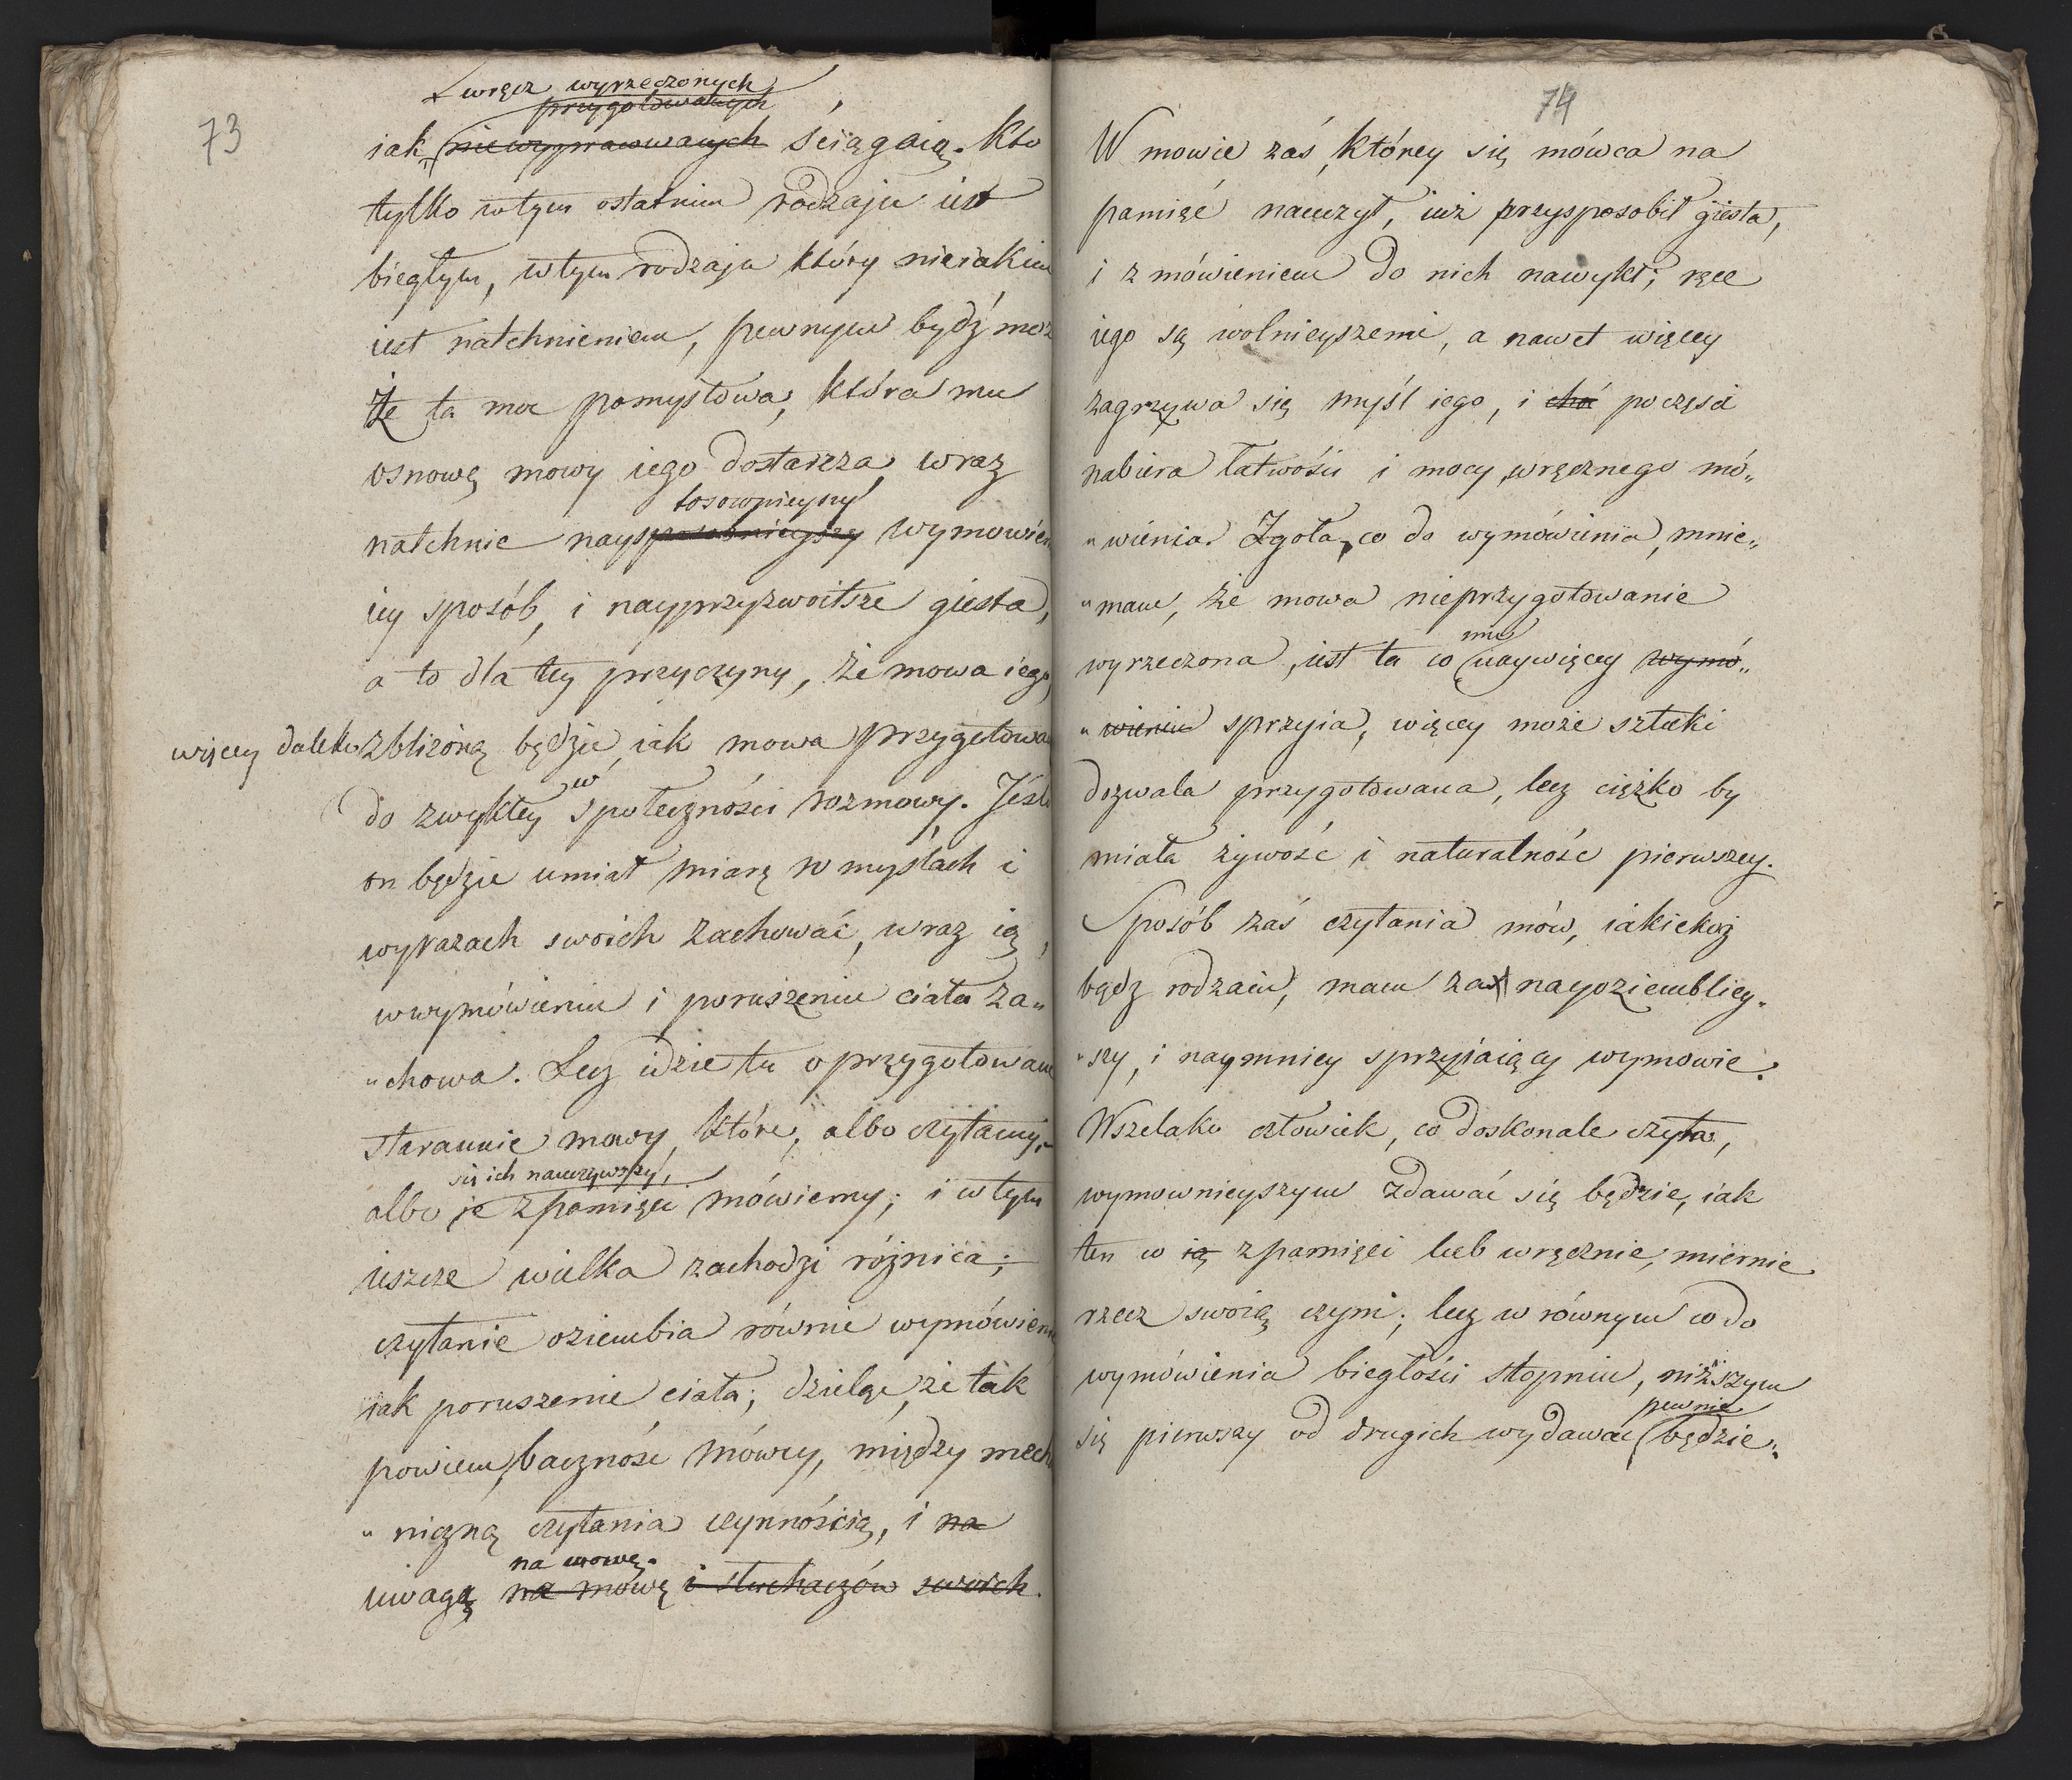 73
wręcz wyrzeczonych
przygotowanych
iak niewypracowanych ściągaią. Kto
tylko w tym ostatnim rodzaju iest
biegłym, w tym rodzaju który nieiakim
iest natchnieniem, pewnym bydź moż
Że ta moc pomysłowa, która mu
osnowę mowy iego dostarcza, wraz
tosownieyszy
natchnie naysposobnieyszy wymowien
iey sposób, i nayprzyzwoitsze giesta,
a to dla tey przyczyny, że mowa iego,
więcey daleko zbliżoną będzie, iak mowa przygotowa
w
do zwykłey społeczności rozmowy. Jeśl
on będzie umiał miarę w myślach i
wyrazach swoich zachować, wraz ią,
w wymówieniu i poruszeniu ciała za„
„chowa. Lecz idzie tu o przygotowane
starannie mowy, które, albo czytamy,
się ich nauczywszy,
albo je z pamięci mówiemy; i w tym
ieszcze wielka zachodzi różnica;
czytanie oziembia równie wymówien
iak poruszenie ciała; dzieląc, że tak
powiem, baczność mówcy, między mech
„niczną czytania czynnością, i na
na mowę.
uwagę na mówę i słuchaczów swoich.
74
W mowie zaś, którey się mówca na
pamięć nauczył, iuż przysposobił giesta,
i z mówieniem do nich nawykł; ręce
iego są wolnieyszemi, a nawet więcey
zagrzywa się myśl iego, i choć po części
nabiera łatwości i mocy wręcznego mó„
„wienia. Zgoła, co do wymówienia, mnie„
„mam, że mowa nieprzygotowanie
mu
wyrzeczona, iest ta co naywięcey wymó„
„wieniu sprzyia, więcey może sztuki
dozwala przygotowana, lecz ciężko by
miała żywość i naturalność pierwszey.
Sposób zaś czytania mów, iakiekoż
bądz rodzaiu, mam za nayoziembley„
„szy, i naymniey sprzyiaiący wymowie.
Wszelako człowiek, co doskonale czyta,
wymownieyszym zdawać się będzie, iak
ten co ią z pamięci lub wręcznie, miernie
rzecz swoią czyni; lecz w równym co do
wymówienia biegłości stopniu, niższym
pewnie
się pierwszy od drugich wydawać będzie„